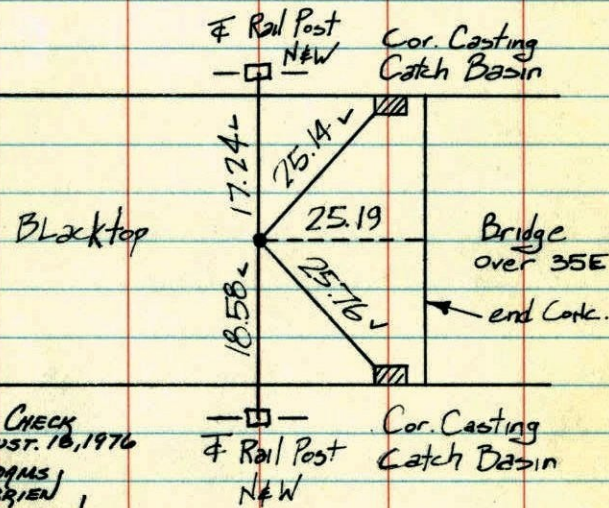 Rail Post
N&W
Cor. Casting
Catch Basin
17.24
25.14
Blacktop
25.19
Bridge
over 35E
18.58
25.76
end Conc.
CHECK
UST. 18, 1976
DAMS
RIEN
Rail Post
N&W
Cor. Casting
Catch Basin